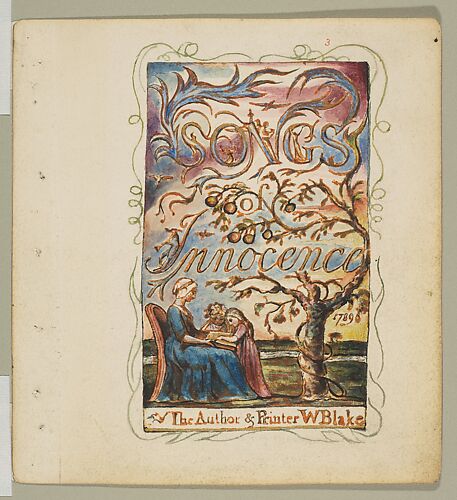 3
SONGS
of
Innocence
1789
The Author & Printer W Blake